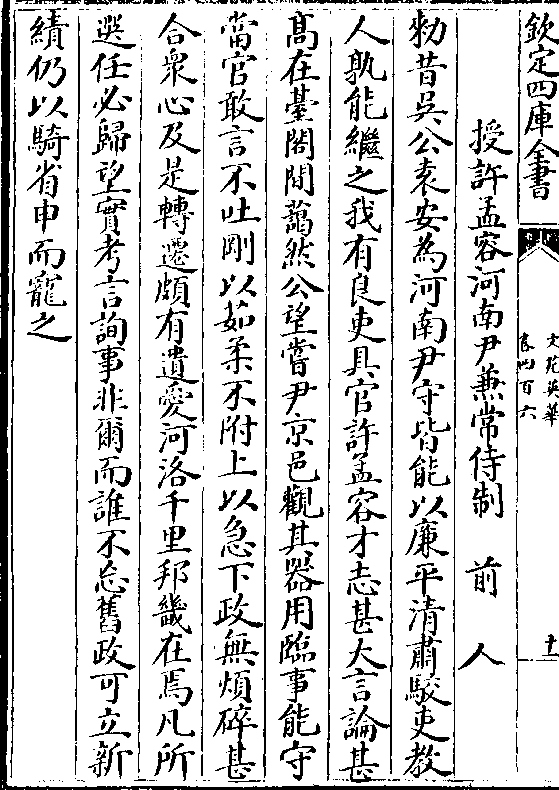 欽定四庫全書
文苑英華
卷四百六
十一
授許孟容河南尹兼常侍制　前人
勑昔吳公袁安為河南尹守皆能以廉平清肅駮吏教
人孰能繼之我有良吏具官許孟容才志甚大言論甚
髙在臺閣間藹然公望嘗尹京邑觀其器用臨事能守
當官敢言不吐剛以茹柔不附上以急下政無煩碎甚
合衆心及是轉遷頗有遺愛河洛千里邦畿在焉凡所
選任必歸望實考言詢事非爾而誰不忘舊政可立新
績仍以騎省申而寵之